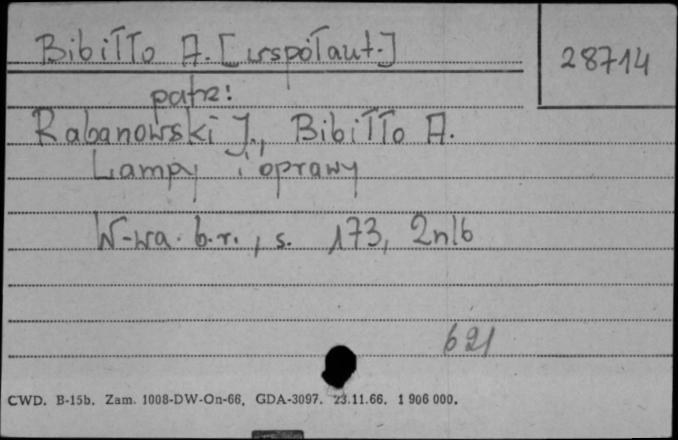 Bibiłło A. [współaut.]
28714
patrz:
Rabanowski J., Bibiłło A.
Lampy i oprawy
W-wa. b.r., s. 173, 2nlb
621
CWD. B-15b. Zam. 1008-DW-On-66, GDA-3097. 23.11.66. 1 906 000.